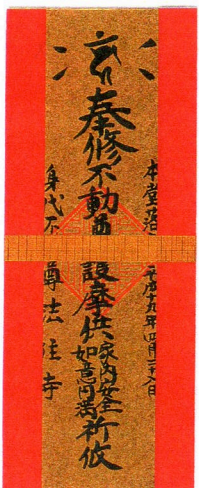 本堂落 平成十九年四月二十八日
奉修不動 護摩供 家内安全
如意円満 祈攸
身代不 尊法住寺